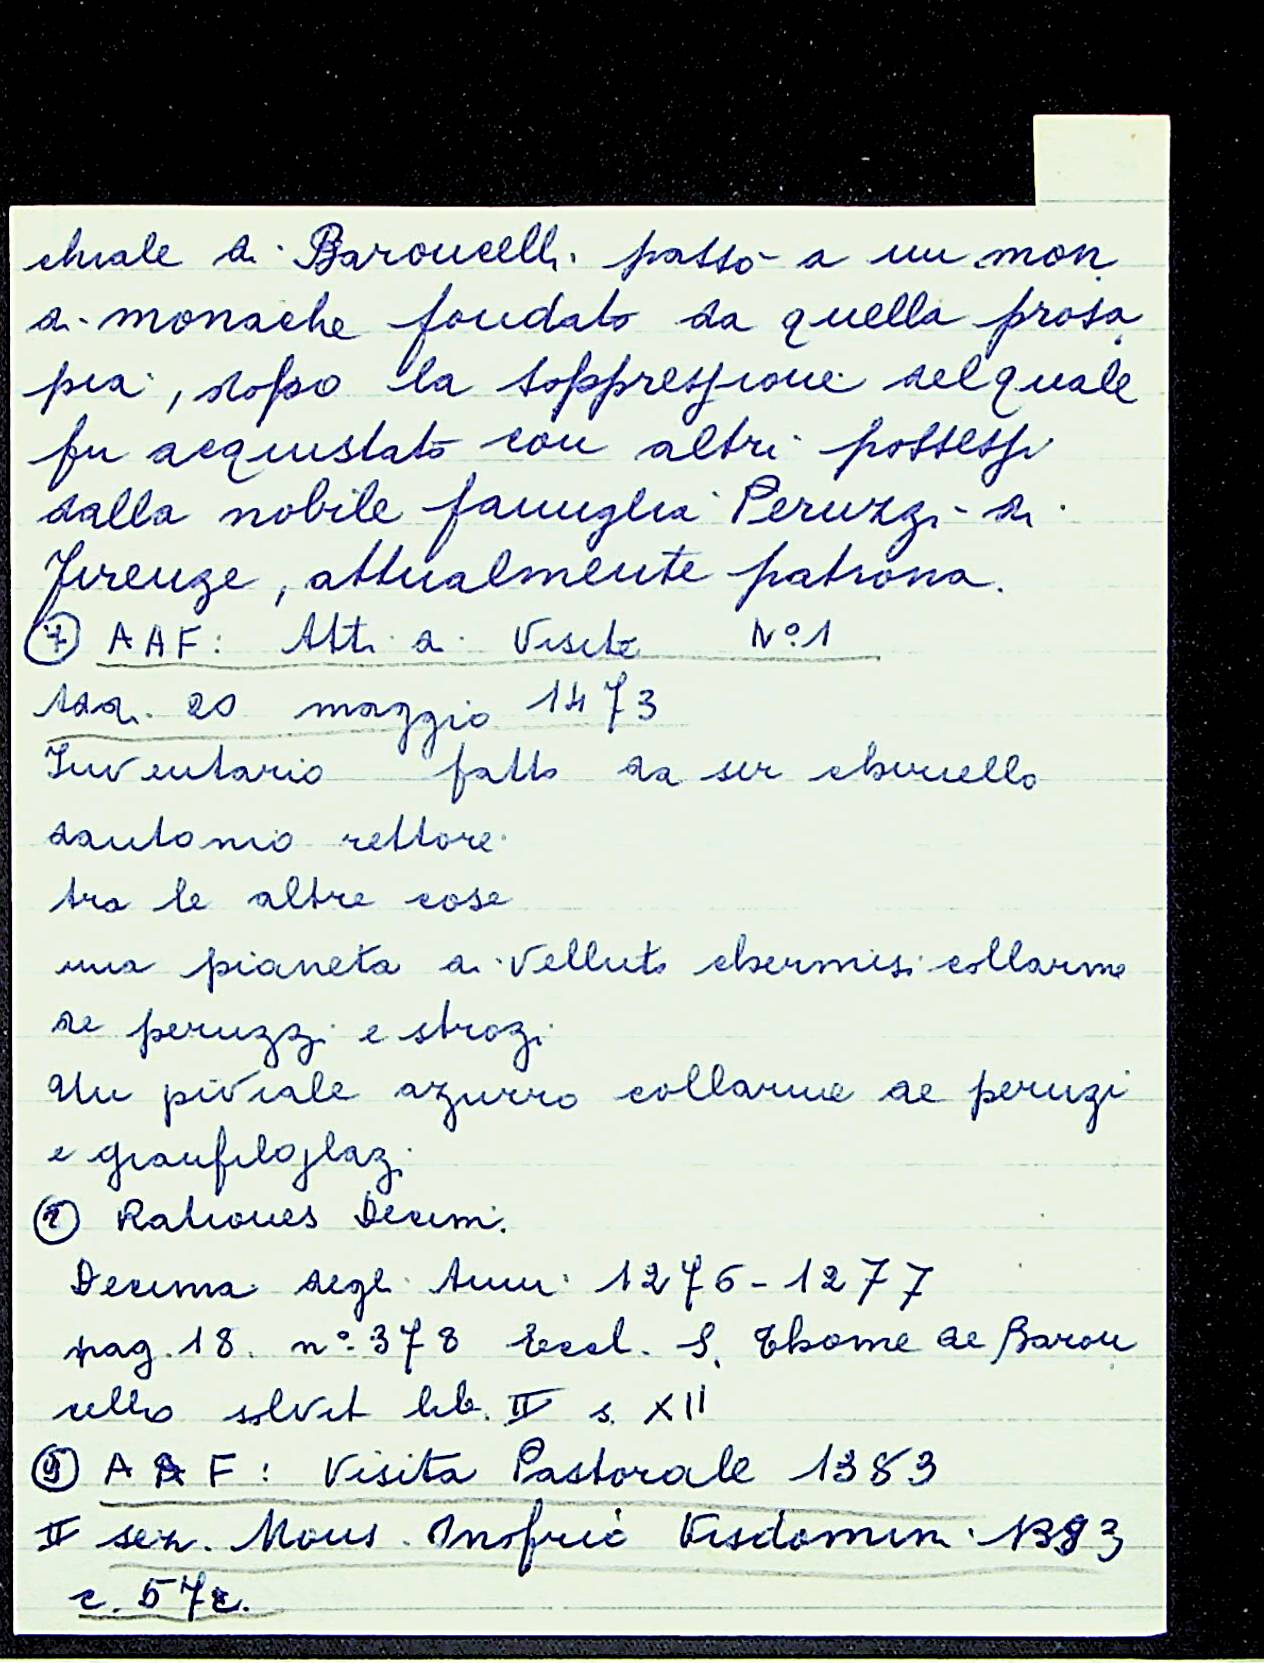 chiale di Baroncelli passò a un mon.
di monache fondato da quella prosa
pia, dopo la soppressione del quale
fu acquistato con altri possessi
dalla nobile famiglia Peruzzi di
Firenze, attualmente patrona.
⑦ AAF: Atti di Visite N°1
addi. 20 maggio 1473
Inventario fatto da ser
dantonio rettore
tra le altre cose
una pianeta di velluto chermisi collarme
de peruzzi e strozi
Un piviale azurro collarme de peruzi
e gianfiliazi
⑧ Rationes Decim.
Decima degli Anni 1276-1277
pag. 18. n° 378 Eccl. S. Thome de Baron
cello solvit lib. II s. XII
⑨ AAF: Visita Pastorale 1383
II sez. Mons. Onofrio Visdomini 1383
c. 57r.